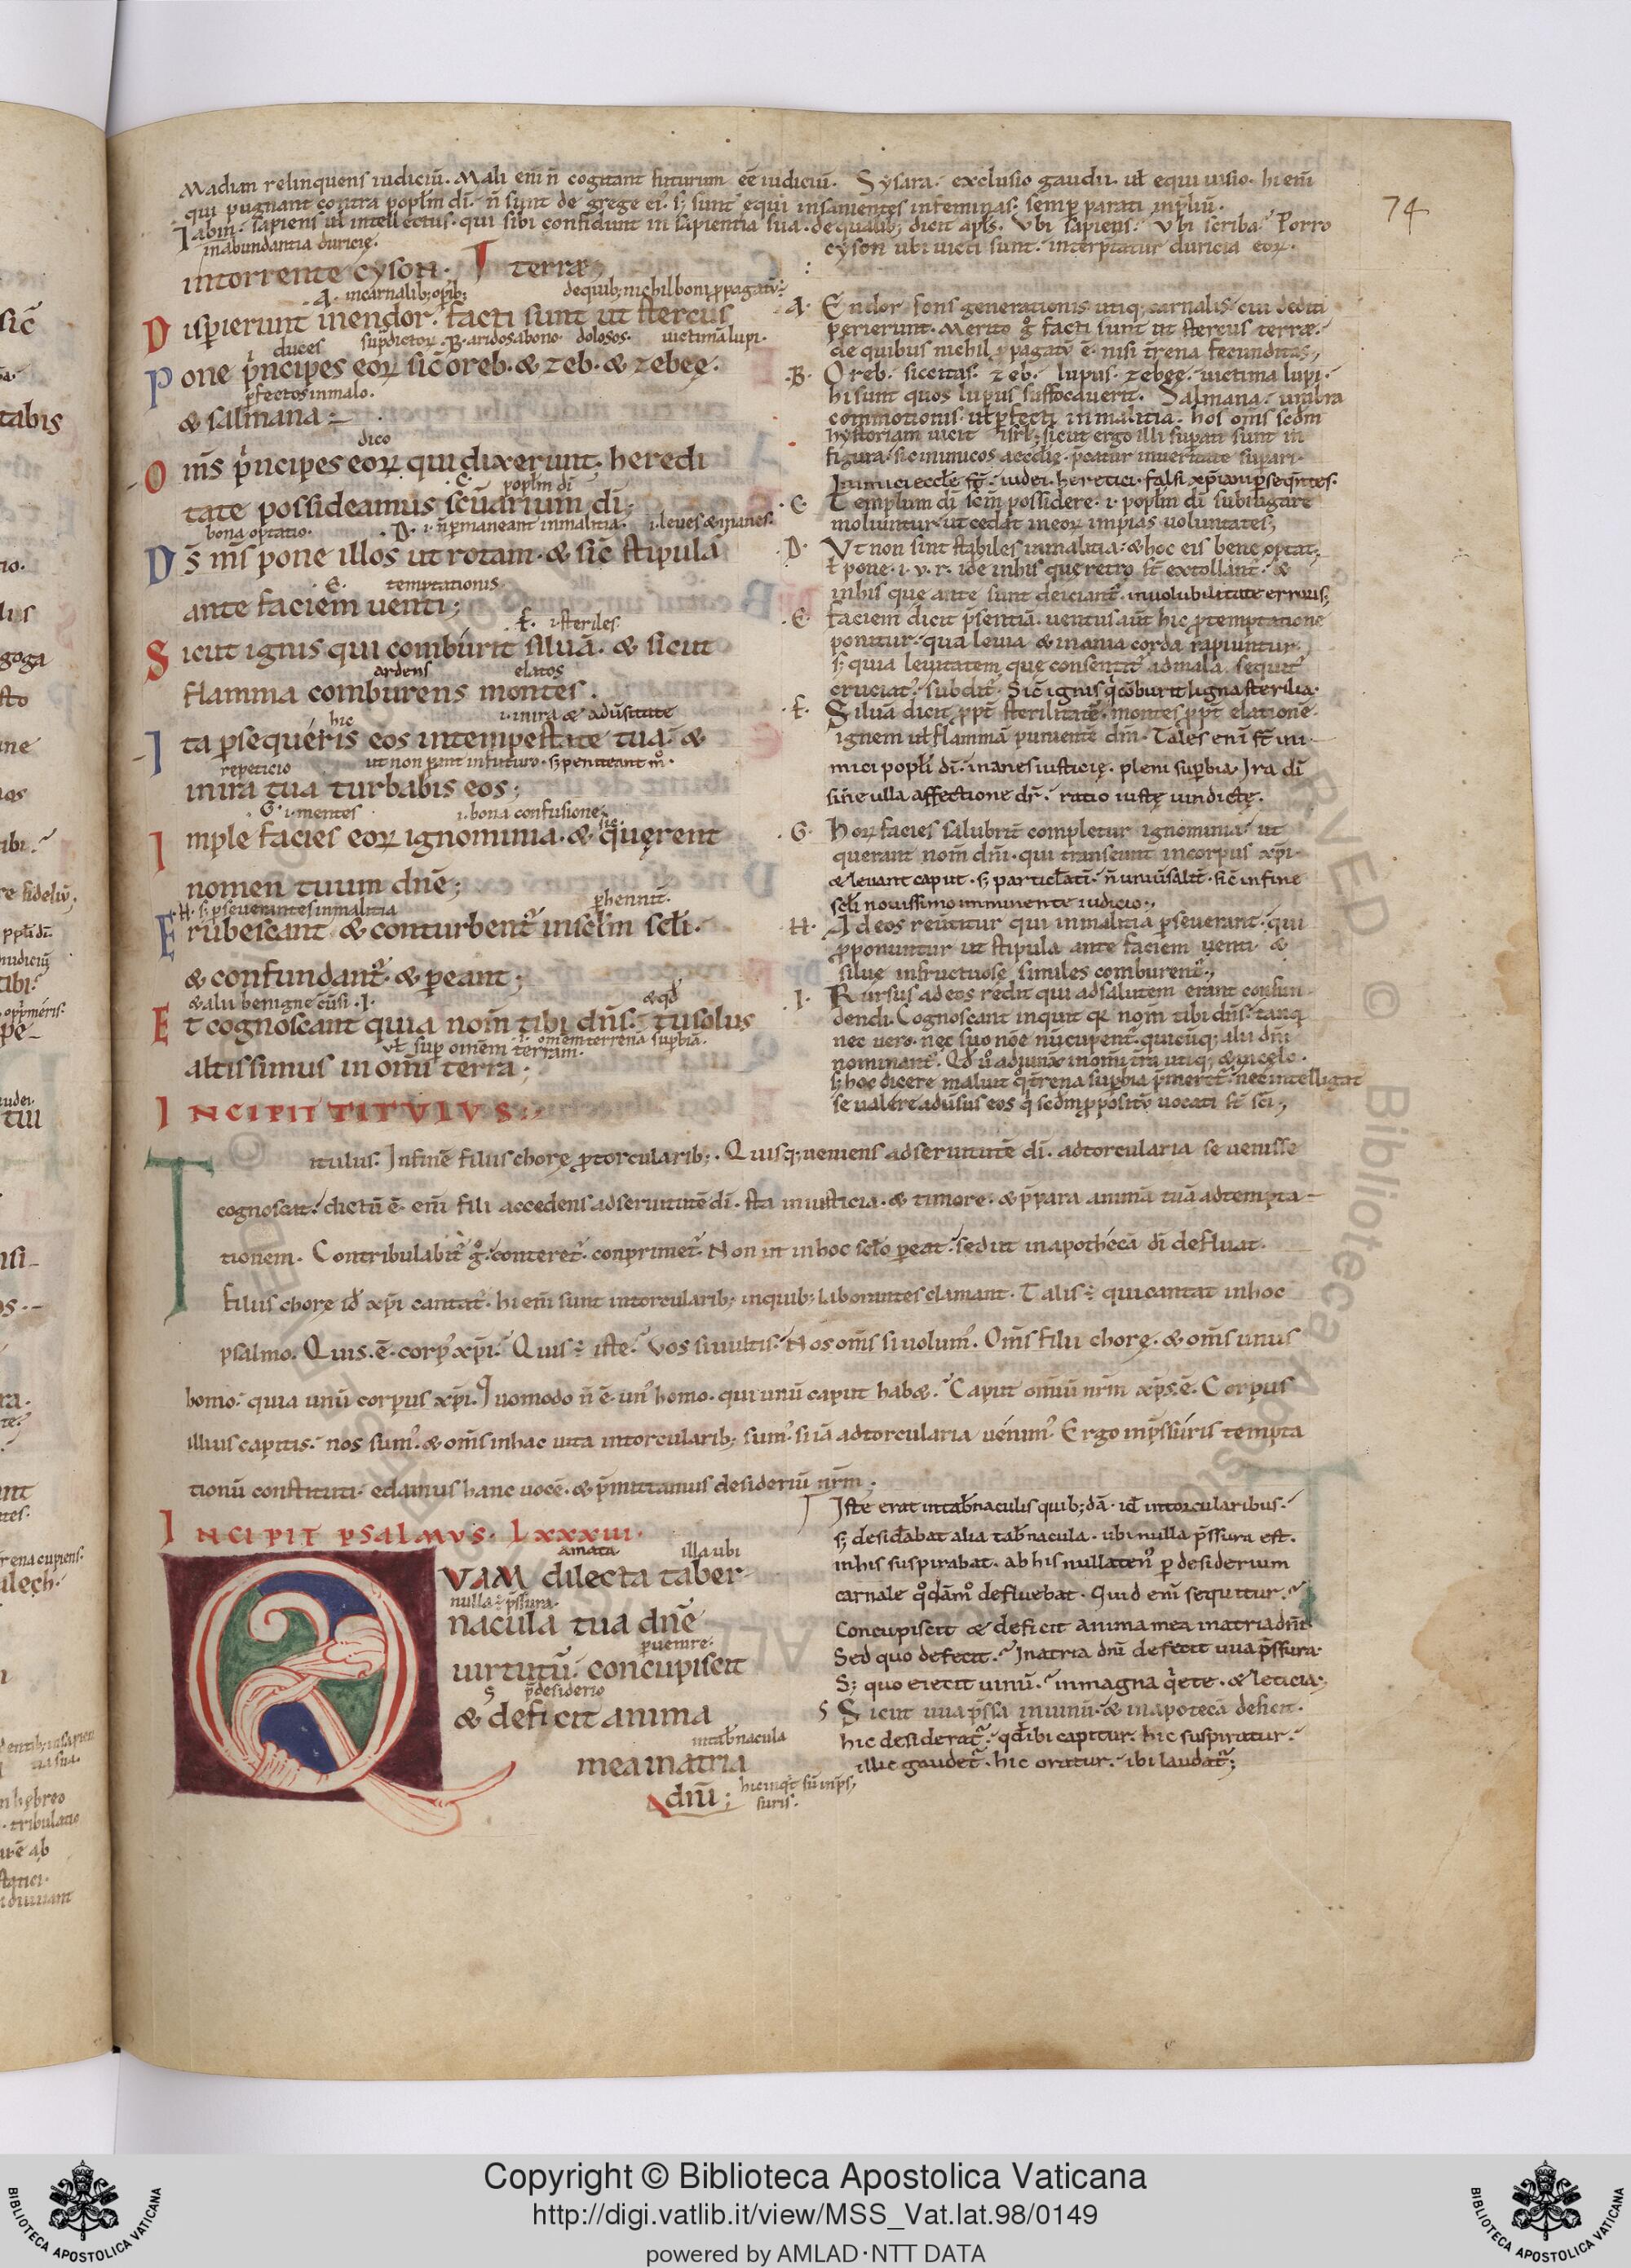 74
Madian relinquens iudiciū. Mali em̄ n̄ cogitant futurum eē iudiciū. Sysara. exclusio gaudii. uł equi uisio. hi em̄
qui pugnant contra popłm dī. n̄ sunt de grege ei'. s; sunt equi insanientes in feminas. semp parati in p̄liū.
Iabin. sapiens uł intellectus. qui sibi confidunt in sapientia sua. de qualib; dicit apłs. Vbi sapiens? Vbi scriba? Porro
cyson ubi uicti sunt. interp̄tatur duricia eoꝝ.
in abundantia duricię.
in torrente cyson. terræ
.A. in carnalib; opib; de quib; nichil boni ꝓpagatū
Disperierunt in endor. facti sunt ut stercus
i duces sup̄dictoꝝ .B. aridos a bono. dolosos. uictimā lupi.
Pone p̄ncipes eoꝝ sic̄ oreb. & zeb. & zebeę.
ꝑfectos in malo.
& salmana
dico
Om̄s p̄ncipes eoꝝ qui dixerunt. heredi
.C. popłm dī
tate possideamus sc̄uarium dī;
bona optatio. .D. i. n̄ ꝑmaneant in malitia. i. leues & inanes.
Ds̄ m̄s pone illos ut rotam. & sic̄ stipulā
.E. temptationis
ante faciem uenti;
.F. i steriles
Sicut ignis qui comburit siluā. & sicut
ardens elatos
flamma comburens montes.
hic i. in ira & aduersitate
Ita ꝑsequéris eos in tempestate tua. &
repeticio ut non ꝑeant in futuro. s; peniteant m°.
in ira tua turbabis eos;
.G. i. mentes i. bona confusione
sic
Imple facies eoꝝ ignominia. & quęrent
nomen tuum dn̄e;
.H. s; ꝑseuerantes in malitia ꝑhennit̄.
Erubescant & conturbent̄ in sc̄łm scłi.
& confundant̄. & ꝑeant;
& alii benigne c̄usi .I. & qđ
Et cognoscant quia nom̄ tibi dn̄s. tu solus
uł sup om̄em terram. i. om̄em terrenā supbiā.
altissimus in om̄i terra;
INCIPIT TITVLVS
.A. Endor fons generationis utiq; carnalis. cui dediti
perierunt. Merito g° facti sunt ut stercus terræ.
de quibus nichil ꝓpagat̄ ē. nisi t̄rena fecunditas;
.B. Oreb. siccitas. zeb. lupus. zebeę. uictima lupi.
hi sunt quos lupus suffocauerit. Salmana. umbra
commotionis. uł ꝑfecti in malitia. hos om̄s scđm
hystoriam uicit isrł; sicut ergo illi supati sunt in
figura. sic inimicos æccłię. p̄catur in ueritate supari.
Inimici eccłę sunt. iudei. heretici. falsi xp̄iani ꝑseqn̄tes.
.C. Templum dī sc̄m possidere. i. popłm dī subiugare
moliuntur. ut cedat in eoꝝ impias uoluntates;
.D. Vt non sint stabiles in malitia. & hoc eis bene optat.
ł pone. i. u. r. id ē in his quę retro st̄ extollant̄. &
in his que ante sunt deiciant̄. in uolubilitate erroris;
.E. faciem dicit p̄sentiā. uentus aut̄ hic ꝓ temptatione
ponitur. qua leuia & inania corda rapiuntur.
s; quia leuitatem quę consentit ad mala sequit̄
cruciat'. subdit̄. Sic̄ ignis q̄ c̄oburit ligna sterilia.
.F. Siluā dicit ꝓpt̄ sterilitatē. montes ꝓpt̄ elationē.
ignem uł flammā punientē dm̄. Tales enī st̄ ini
mici popłi dī. inanes iusticię. pleni supbia. Ira dī
sine ulla affectione dr̄. ratio iustę uindictę.
.G. Hoꝝ facies salubrit̄ completur ignominia. ut
querant nom̄ dn̄i. qui transeunt in corpus xp̄i.
& leuant caput. s; particłati. n̄ uniūsalit̄. sic̄ in fine
scłi nouissimo imminente iudicio;
.H. Ad eos reūtitur qui in malitia ꝑseuerant. qui
ꝓponuntur ut stipula ante faciem uenti. &
silue infructuose similes comburent̄;
.I. Rursus ad eos redit qui ad salutem erant confun
dendi. Cognoscant inquit qa nom̄ tibi dn̄s. tanq
nec uero. nec suo nōe nūcupent̄. quicūq; alii dn̄i
nominant̄. Qđ uº adiunx in om̄i t̄ra. utiq; & in cęlo.
s; hoc dicere maluit q° t̄rena supbia p̄meret̄. nec intelligat
se ualere aduersus eos q' scđm ꝓpositū uocati st̄ sc̄i;
Titulus. In finē filiis chorę ꝓ torcularib;. Quisq; ueniens ad seruitutē dī. ad torcularia se uenisse
cognoscat. dictū ē em̄. fili accedens ad seruitutē dī. sta in iusticia. & timore. & p̄para animā tuā ad tempta
tionem. Contribulabit̄ g°. conteret̄. conprimet̄. Non ut in hoc scło ꝑeat. sed ut in apothecā dī defluat.
Filiis chorę id xp̄i cantat̄. hi em̄ sunt in torcularib; in quib; laborantes clamant. Talis ē qui cantat in hoc
psalmo. Quis ē. corp' xp̄i. Quis ē iste? Vos si uultis. Nos om̄s si uolum'. Om̄s filii chorę. & om̄s unus
homo. quia unū corpus xp̄i. Quomodo n̄ ē un' homo. qui unū caput hab&? Caput om̄iū nr̄m xp̄s ē. Corpus
illius capitis. nos sum'. & om̄s in hac uita in torcularib; sum'. si iā ad torcularia uénim'. Ergo in p̄ssúris tempta
tionū constituti. edamus hanc uocē. & p̄mittamus desideriū nr̄m;
INCIPIT PSALMVS. LXXXIII.
amata illa ubi
QVAM dilecta taber
nulla ē p̄ssura.
nacula tua dn̄e
puenire.
uirtutū. concupiscit
S p̄ desiderio
& deficit anima
in tab̄nacula
mea in atria
dn̄i; hic inqt̄ sū in p̄s
suris.
Iste erat in tab̄naculis quib;dā. id in torcularibus.
s; desid̄abat alia tab̄nacula. ubi nulla p̄ssura est.
in his suspirabat. ab his nullaten' p desiderium
carnale q°dām° defluebat. Quid em̄ sequitur?
Concupiscit & deficit anima mea in atria dn̄i.
Sed quo defecit? In atria dn̄i defecit uua p̄ssura.
S; quo eiecit uinū? in magna q'ete. & leticia;
S Sicut uua p̄ssa in uinū. & in apotecā deficit.
hic desiderat̄. qđ ibi capitur. hic suspiratur.
illic gaudet̄. hic oratur. ibi laudat̄;
Copyright © Biblioteca Apostolica Vaticana
http://digi.vatlib.it/view/MSS_Vat.lat.98/0149
powered by AMLAD·NTT DATA
BIBLIOTECA APOSTOLICA VATICANA
BIBLIOTECA APOSTOLICA VATICANA